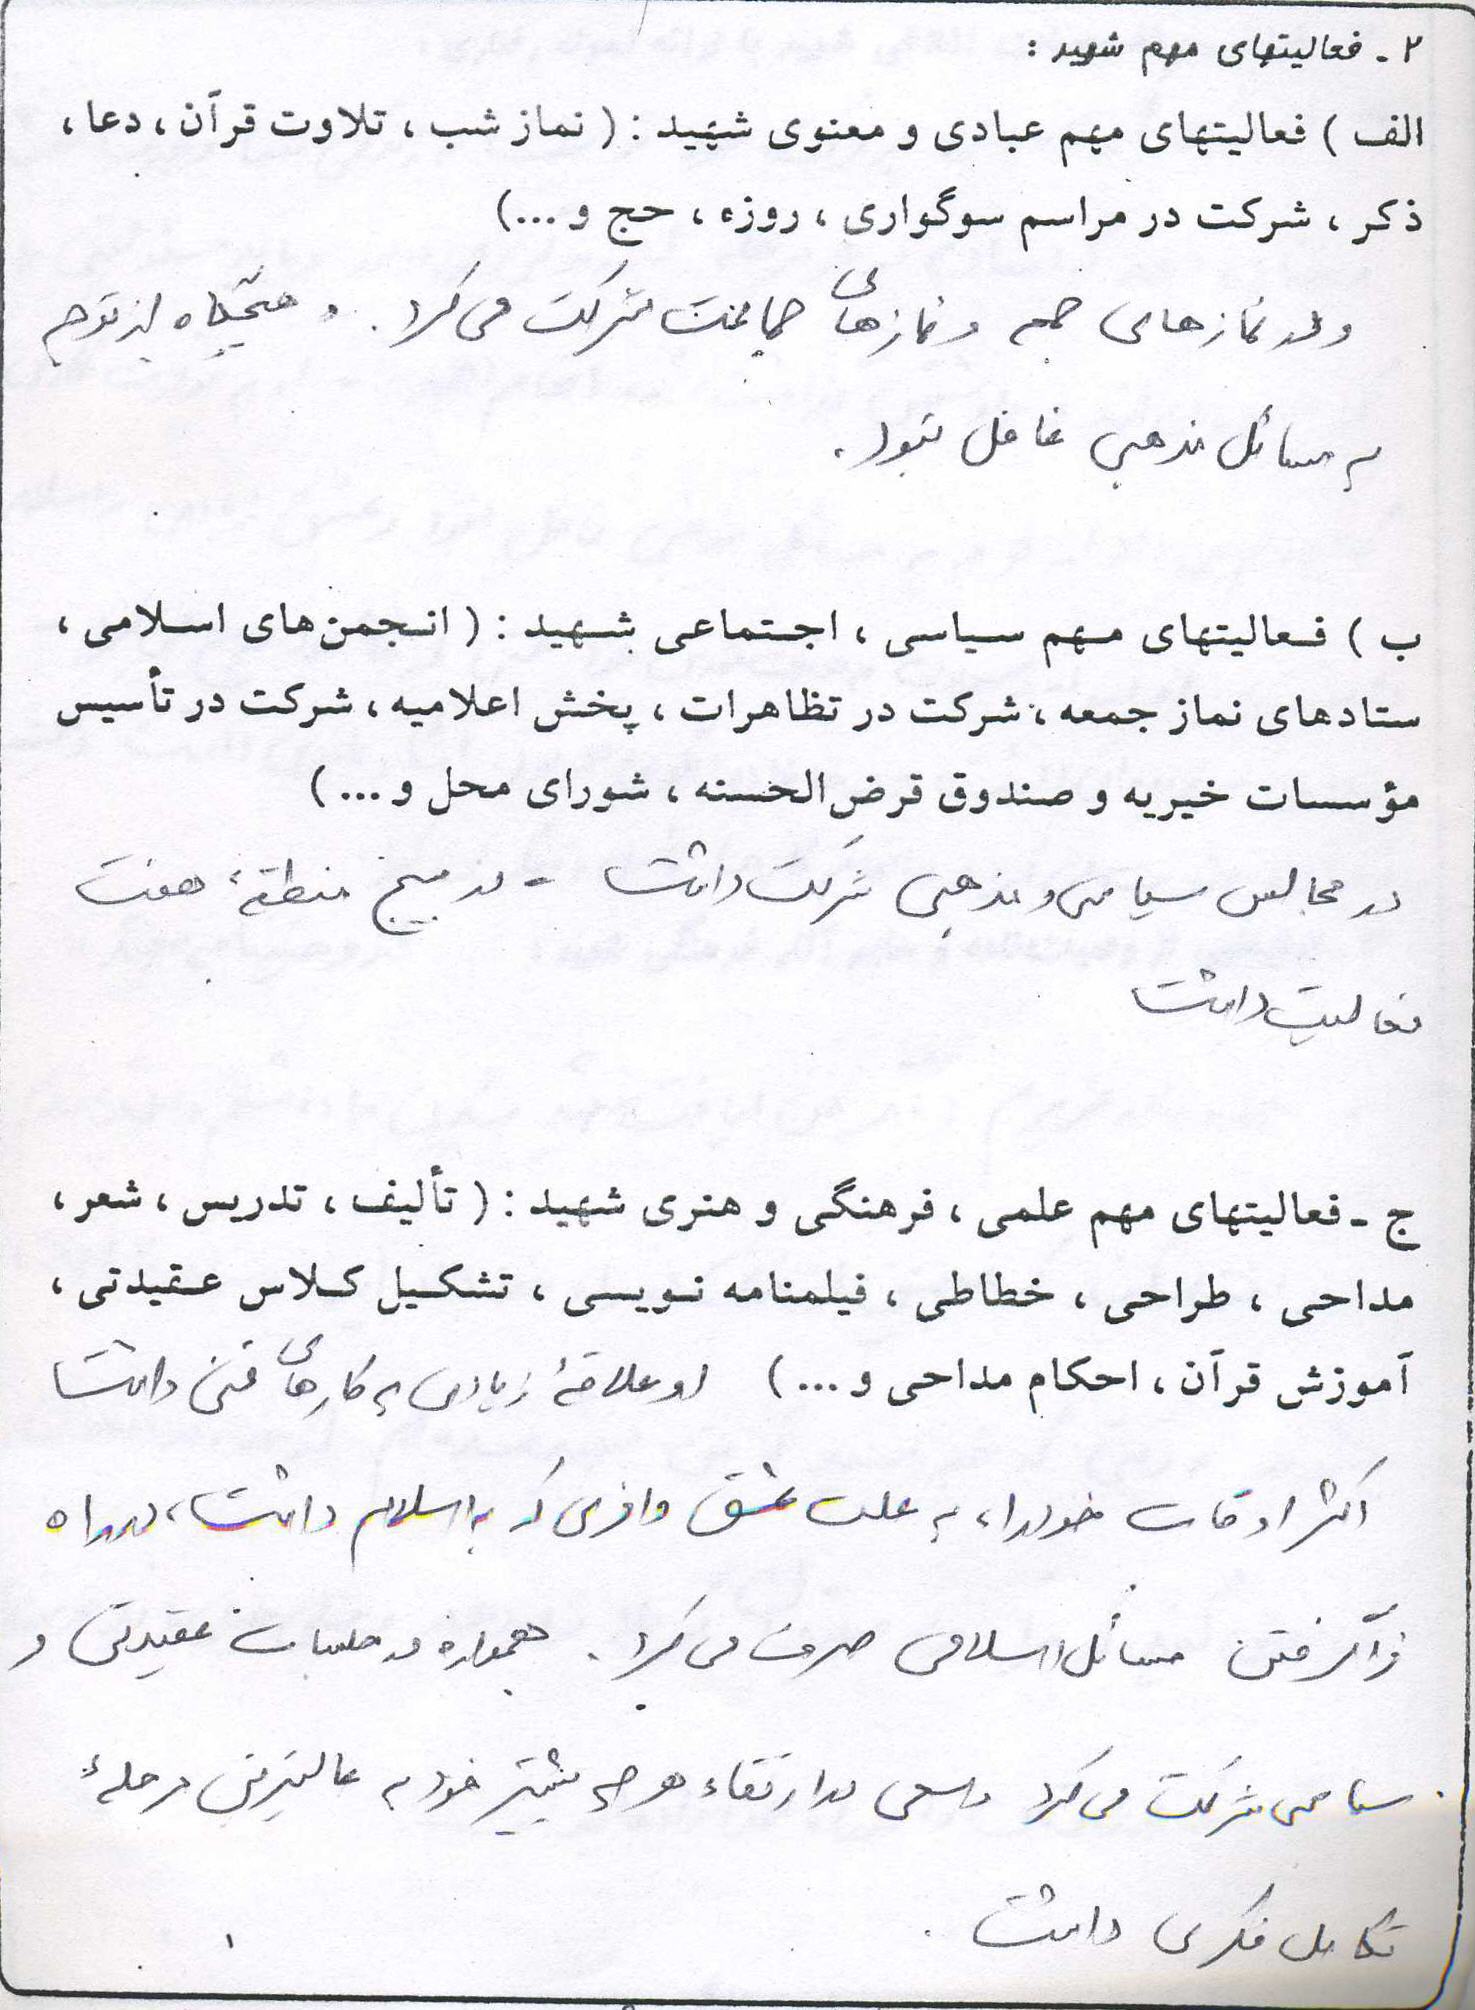 ۲ ـ فعالیتهای مهم شهید :
الف ) فعالیتهای مهم عبادی و معنوی شهید : ( نماز شب ، تلاوت قرآن ، دعا ،
ذکر ، شرکت در مراسم سوگواری ، روزه ، حج و ...)
و در نمازهای جمعه و نمازهای جماعت شرکت می‌کرد . و هیچگاه از توجه
به مسائل مذهبی غافل نبود .
ب ) فعالیتهای مهم سیاسی ، اجتماعی شهید : ( انجمن‌های اسلامی ،
ستادهای نماز جمعه ، شرکت در تظاهرات ، پخش اعلامیه ، شرکت در تأسیس
مؤسسات خیریه و صندوق قرض‌الحسنه ، شورای محل و ... )
در مجالس سیاسی و مذهبی شرکت داشت - در بسیج منطقهٔ هفت
فعالیت داشت
ج ـ فعالیتهای مهم علمی ، فرهنگی و هنری شهید : ( تألیف ، تدریس ، شعر ،
مداحی ، طراحی ، خطاطی ، فیلمنامه نویسی ، تشکیل کلاس عقیدتی ،
آموزش قرآن ، احکام مداحی و ...) او علاقهٔ زیادی به کارهای فنی داشت
اکثر اوقات خود را، به علت عشق وافری که به اسلام داشت، در راه
فراگرفتن مسائل اسلامی صرف می‌کرد . همواره در جلسات عقیدتی و
سیاسی شرکت می‌کرد و سعی در ارتقاء هر چه بیشتر خود به عالیترین مرحلهٔ
تکامل فکری داشت .